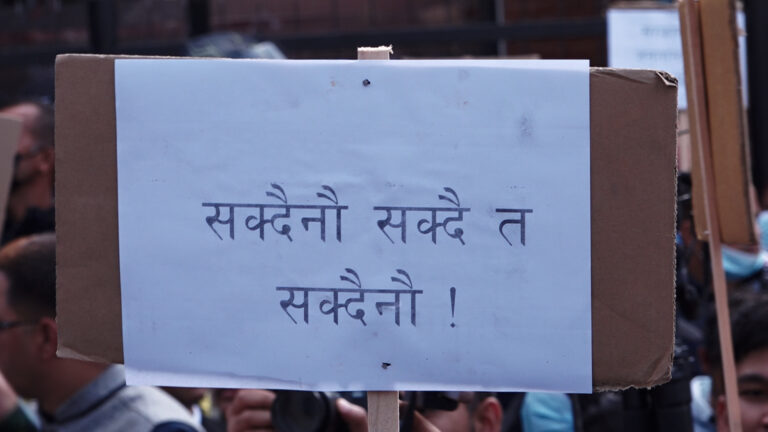 सक्दैनौ सक्दै त
सक्दैनौ !